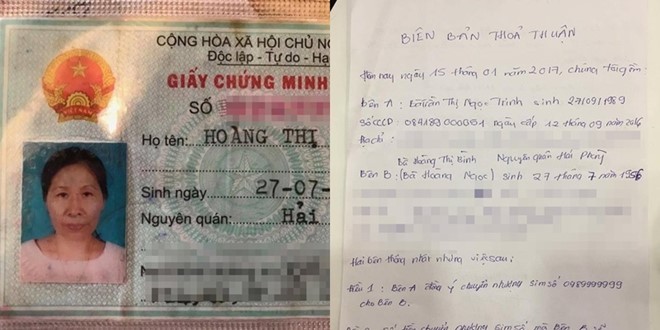 CỘNG HÒA XÃ HỘI CHỦ NG
Độc lập - Tự do - Hạ
GIẤY CHỨNG MINH
SỐ
Họ tên: HOÀNG THỊ
Sinh ngày 27-07-
Nguyên quán: Hải
VIỆT NAM
BIÊN BẢN THOẢ THUẬN
Hôm nay ngày 15 tháng 01 năm 2017, chúng tôi gồm:
Bên A: Bà Trần Thị Ngọc Trinh sinh 27/09/1989
Số CCCD 084189000051 ngày cấp 12 tháng 09 năm 2016
Địa chỉ:
Bà Hoàng Thị Bình Nguyên quán Hải Phòng
Bên B: (Bà Hoàng Ngọc) sinh 27 tháng 7 năm 1956
Hai bên thống nhất những việc sau:
Điều 1: Bên A đồng ý chuyển nhượng sim số 0989999999
cho Bên B.